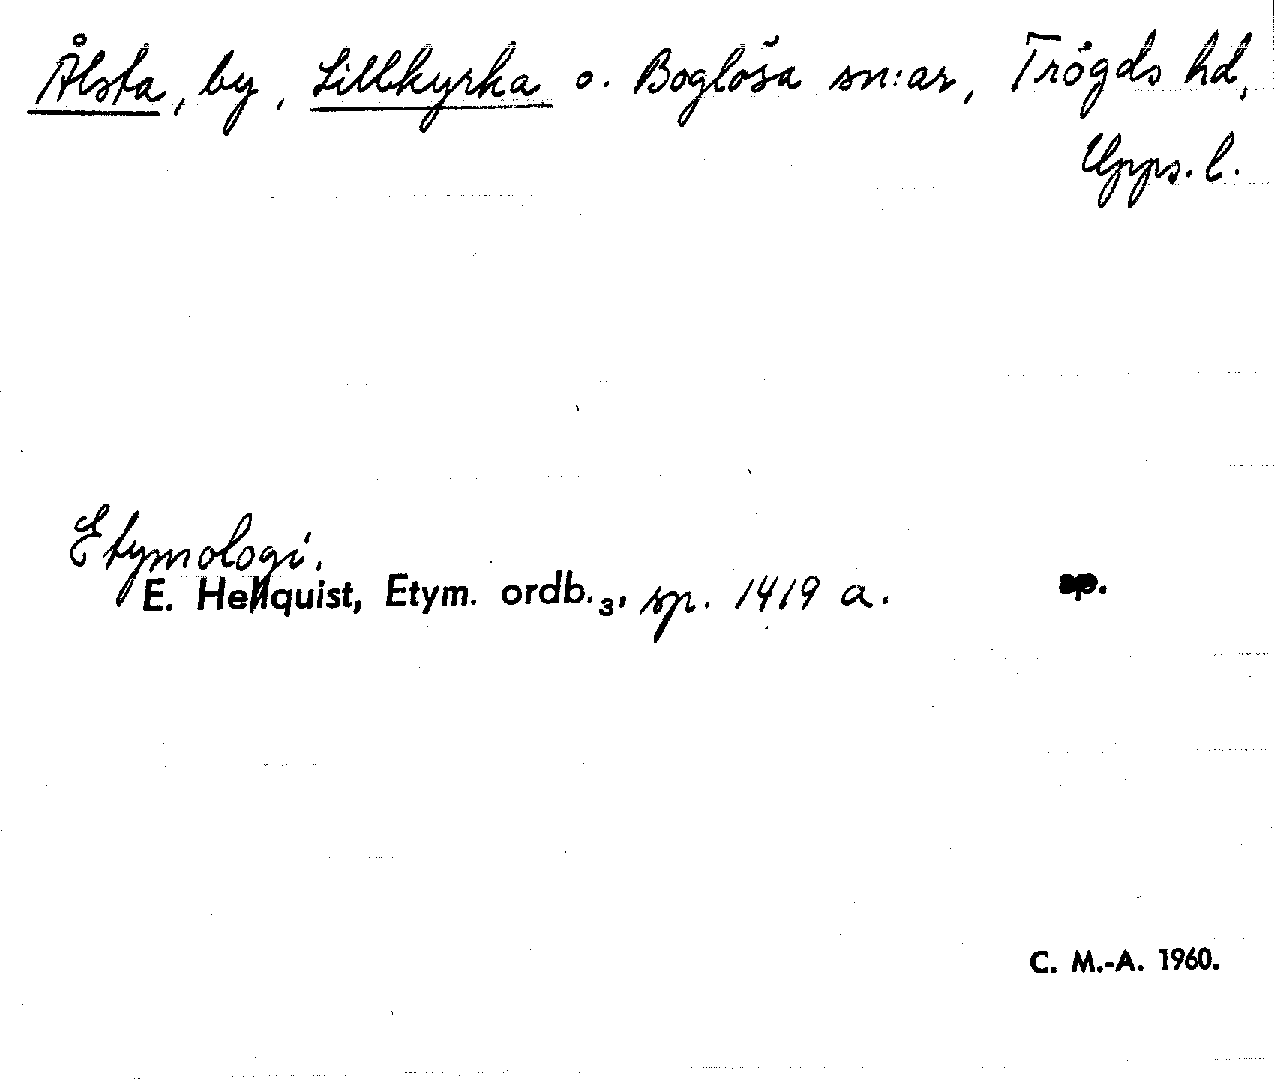 Ålsta, by, Lillkyrka o. Boglösa sn:ar, Trögds hd,
Upps. l.
Etymologi.
E. Hellquist, Etym. ordb.₃, sp. 1419 a. sp.
C. M.-A. 1960.